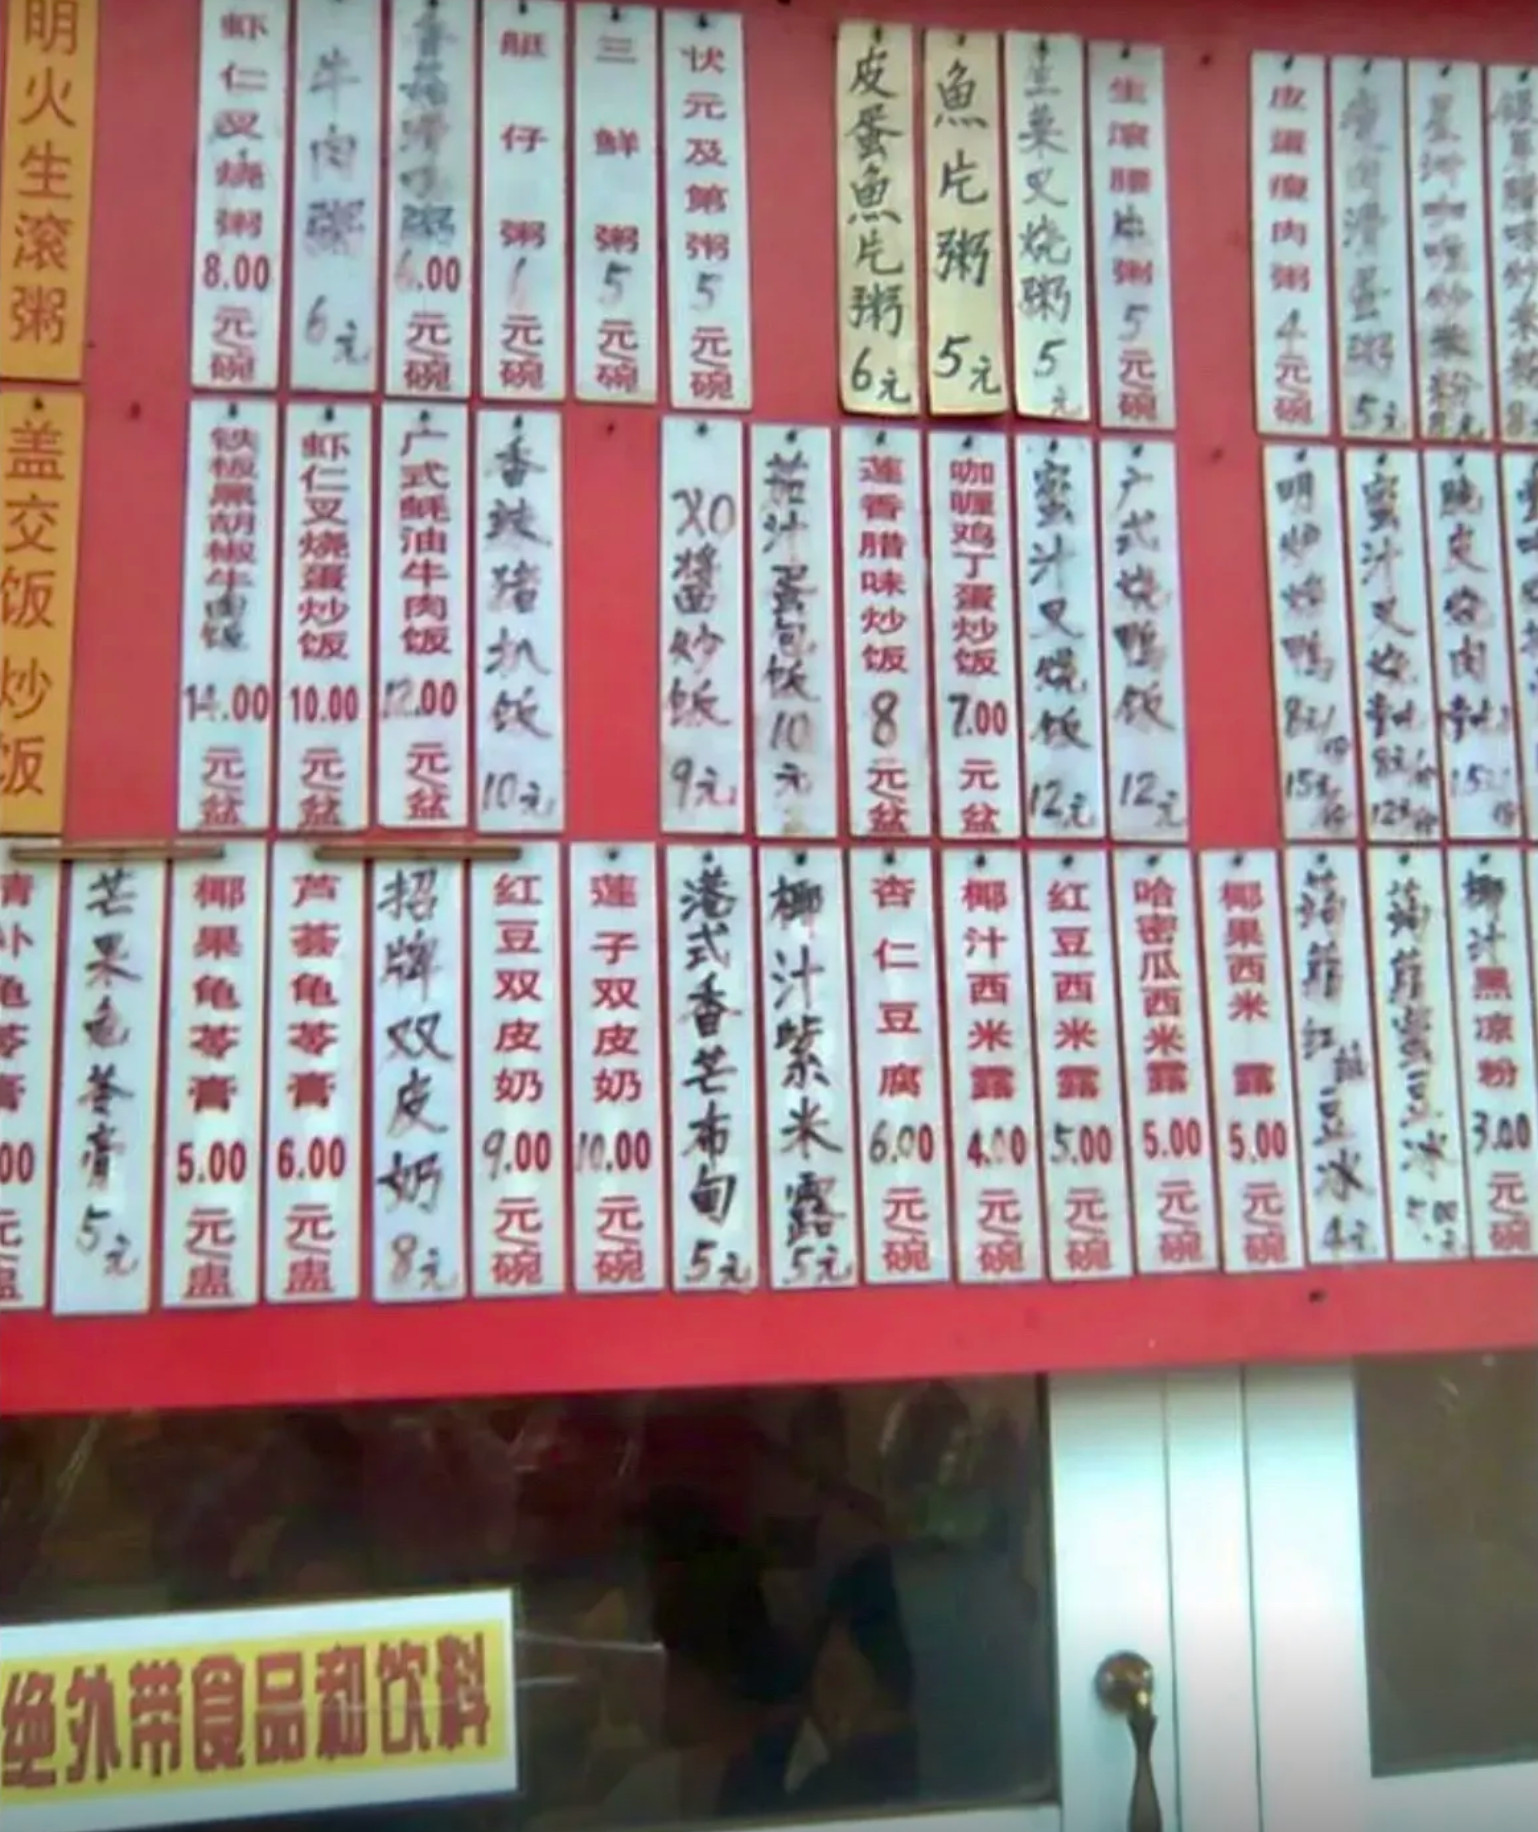 明火生滚粥
虾仁叉烧粥 8.00 元/碗
牛肉粥 6元
艇仔粥 元/碗
三鲜粥 5 元/碗
状元及第粥 5 元/碗
皮蛋魚片粥 6元
魚片粥 5元
生菜叉烧粥 5元
生滚腰片粥 5 元/碗
皮蛋瘦肉粥 4 元/碗
瘦肉滑蛋粥 5元
星洲咖喱炒米粉
盖交饭 炒饭
铁板黑胡椒牛肉饭 14.00 元/盆
虾仁叉烧蛋炒饭 10.00 元/盆
广式蚝油牛肉饭 12.00 元/盆
香豉猪扒饭 10元
XO醬炒饭 9元
茄汁蛋包饭 10元
莲香腊味炒饭 8 元/盆
咖喱鸡丁蛋炒饭 7.00 元/盆
蜜汁叉烧饭 12元
广式烧鸭饭 12元
明炉烧鸭
蜜汁叉烧
脆皮烧肉
清补龟苓膏
芒果龟苓膏 5元
椰果龟苓膏 5.00 元/盅
芦荟龟苓膏 6.00 元/盅
招牌双皮奶 8元
红豆双皮奶 9.00 元/碗
莲子双皮奶 10.00 元/碗
港式香芒布甸 5元
椰汁紫米露 5元
杏仁豆腐 6.00 元/碗
椰汁西米露 4.00 元/碗
红豆西米露 5.00 元/碗
哈密瓜西米露 5.00 元/碗
椰果西米露 5.00 元/碗
红豆冰 4元
豆冰 5.00元
椰汁黑凉粉 3.00 元/碗
绝外带食品和饮料